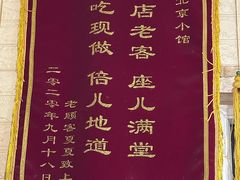 北京小馆
店老客 座儿满堂
吃现做 倍儿地道
老顾客夏夏致上
二零二零年九月十八日